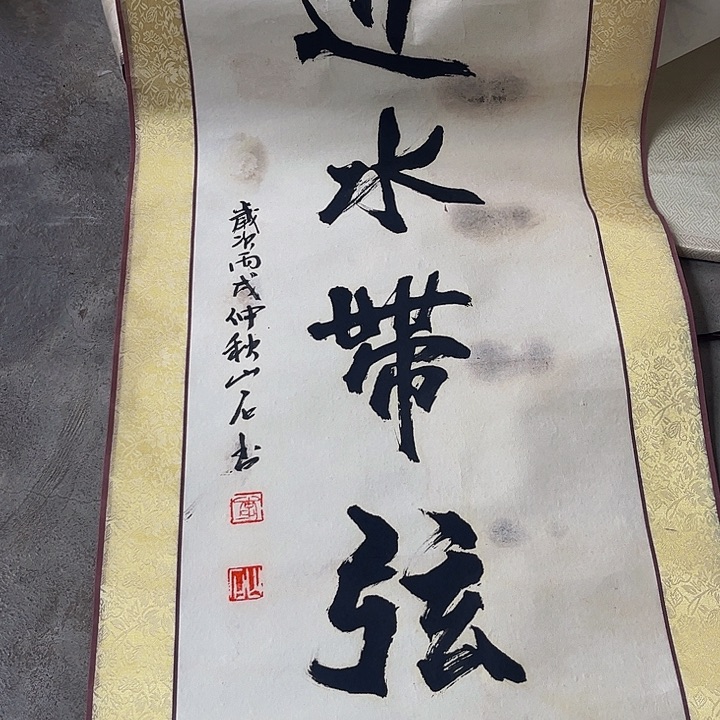 近水帶弦
歲次丙戌仲秋山石书